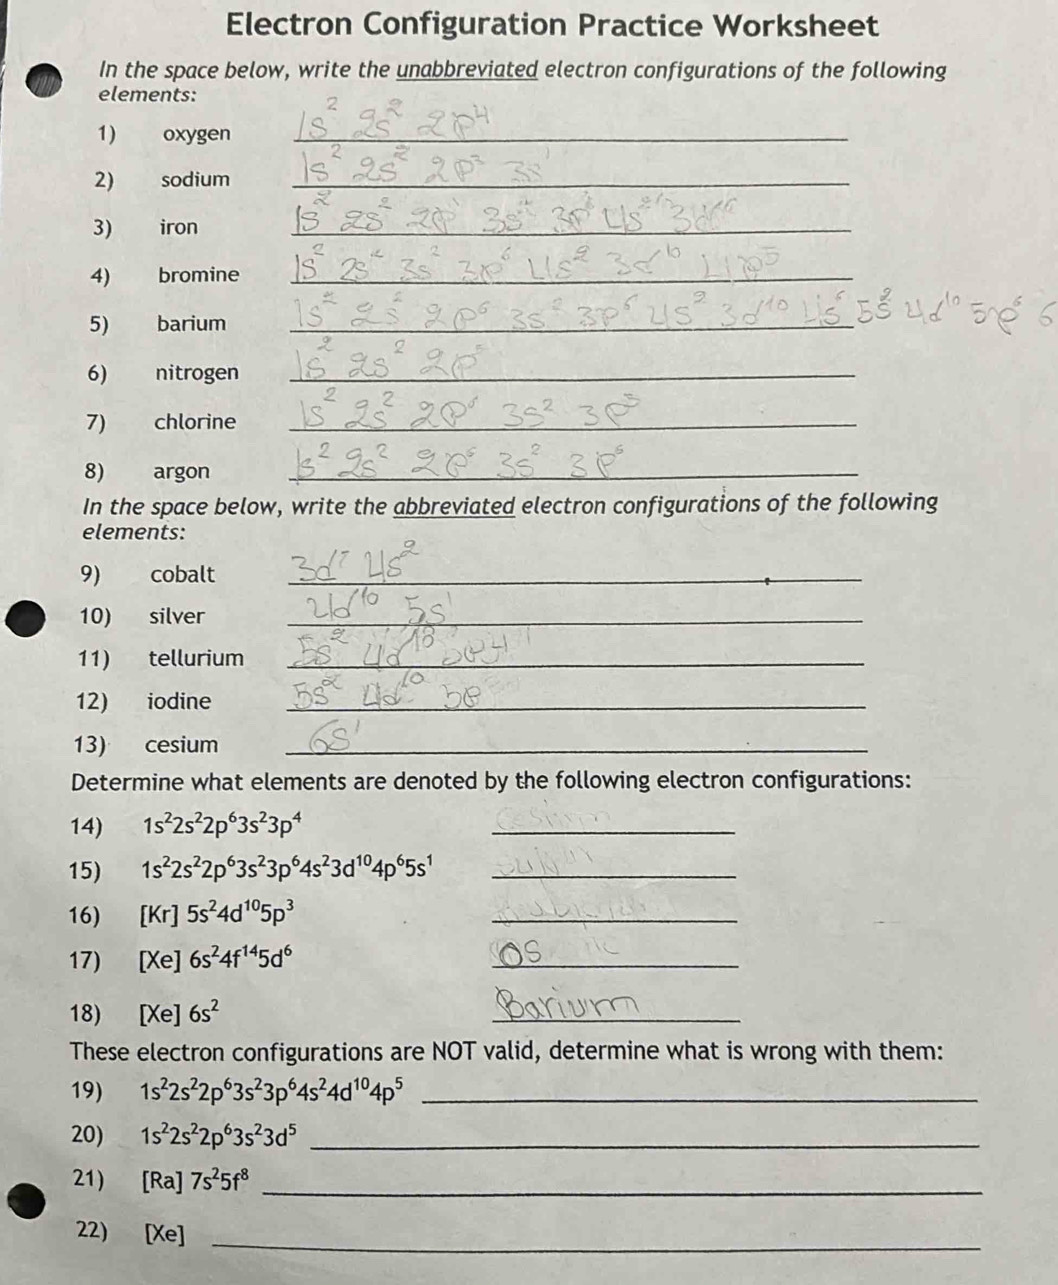 Electron Configuration Practice Worksheet
In the space below, write the unabbreviated electron configurations of the following
elements:
1) oxygen 1s² 2s² 2p⁴
2) sodium 1s² 2s² 2p 3s¹
3) iron 1s² 2s² 2p 3s 3p⁶ 4s² 3d
4) bromine 1s² 2s² 3s² 3p⁶ 4s² 3d¹⁰ 4p⁵
5) barium 1s² 2s² 2p⁶ 3s² 3p⁶ 4s² 3d¹⁰ 5s² 4d¹⁰ 5p⁶ 6
6) nitrogen 1s² 2s² 2p
7) chlorine 1s² 2s² 2p⁶ 3s² 3p⁵
8) argon 1s² 2s² 2p⁶ 3s² 3p⁶
In the space below, write the abbreviated electron configurations of the following
elements:
9) cobalt 3d⁷ 4s²
10) silver 4d¹⁰ 5s¹
11) tellurium 5s² 4d 5p4
12) iodine 5s² 4d¹⁰ 5p
13) cesium 6s¹
Determine what elements are denoted by the following electron configurations:
14) 1s²2s²2p⁶3s²3p⁴
15) 1s²2s²2p⁶3s²3p⁶4s²3d¹⁰4p⁶5s¹
16) [Kr] 5s²4d¹⁰5p³
17) [Xe] 6s²4f¹⁴5d⁶ OS
18) [Xe] 6s² Barium
These electron configurations are NOT valid, determine what is wrong with them:
19) 1s²2s²2p⁶3s²3p⁶4s²4d¹⁰4p⁵
20) 1s²2s²2p⁶3s²3d⁵
21) [Ra] 7s²5f⁸
22) [Xe]